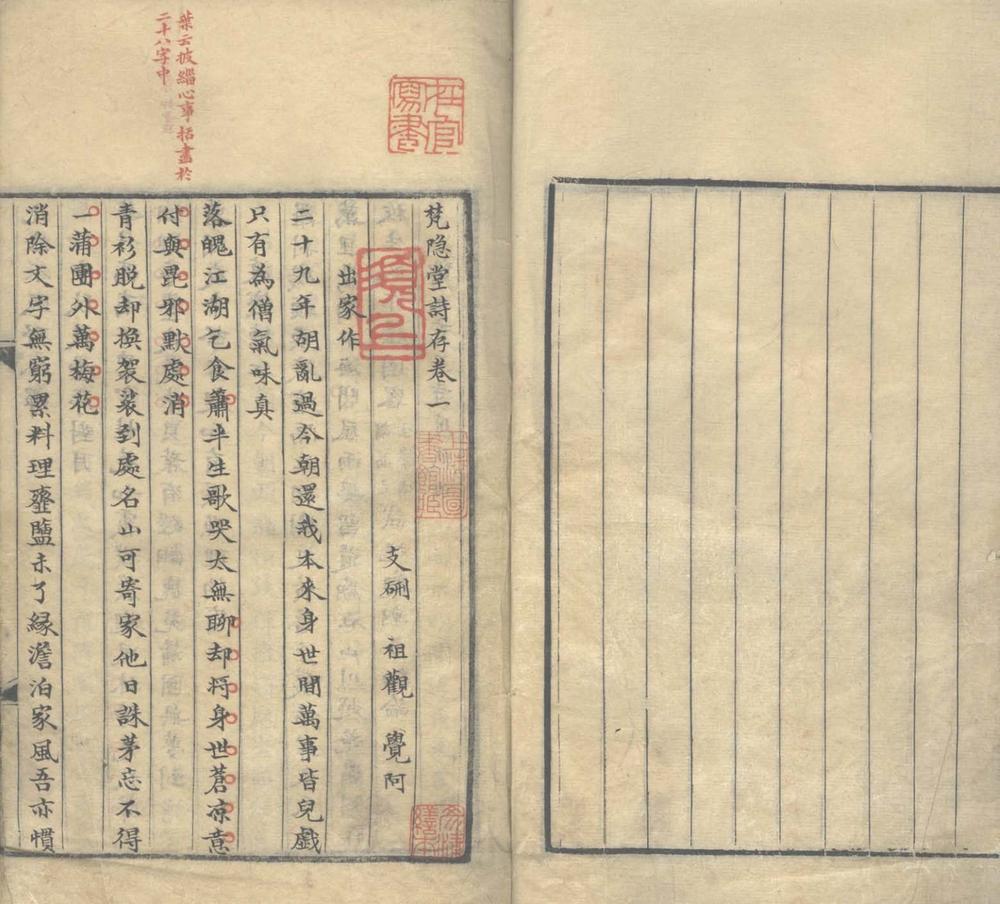 葉云披緇心事括盡於
二十八字中
在官寫書
梵隐堂詩存卷一
支硎 祖觀 覺阿
出家作
二十九年胡亂過今朝還我本來身世間萬事皆兒戯
只有為僧氣味真
落魄江湖乞食蕭半生歌哭太無聊却将身世蒼凉意
付與毘邪默處消
青衫脱却換袈裟到處名山可寄家他日誅茅忘不得
一蒲團外萬梅花
消除文字無窮累料理虀鹽未了緣澹泊家風吾亦慣